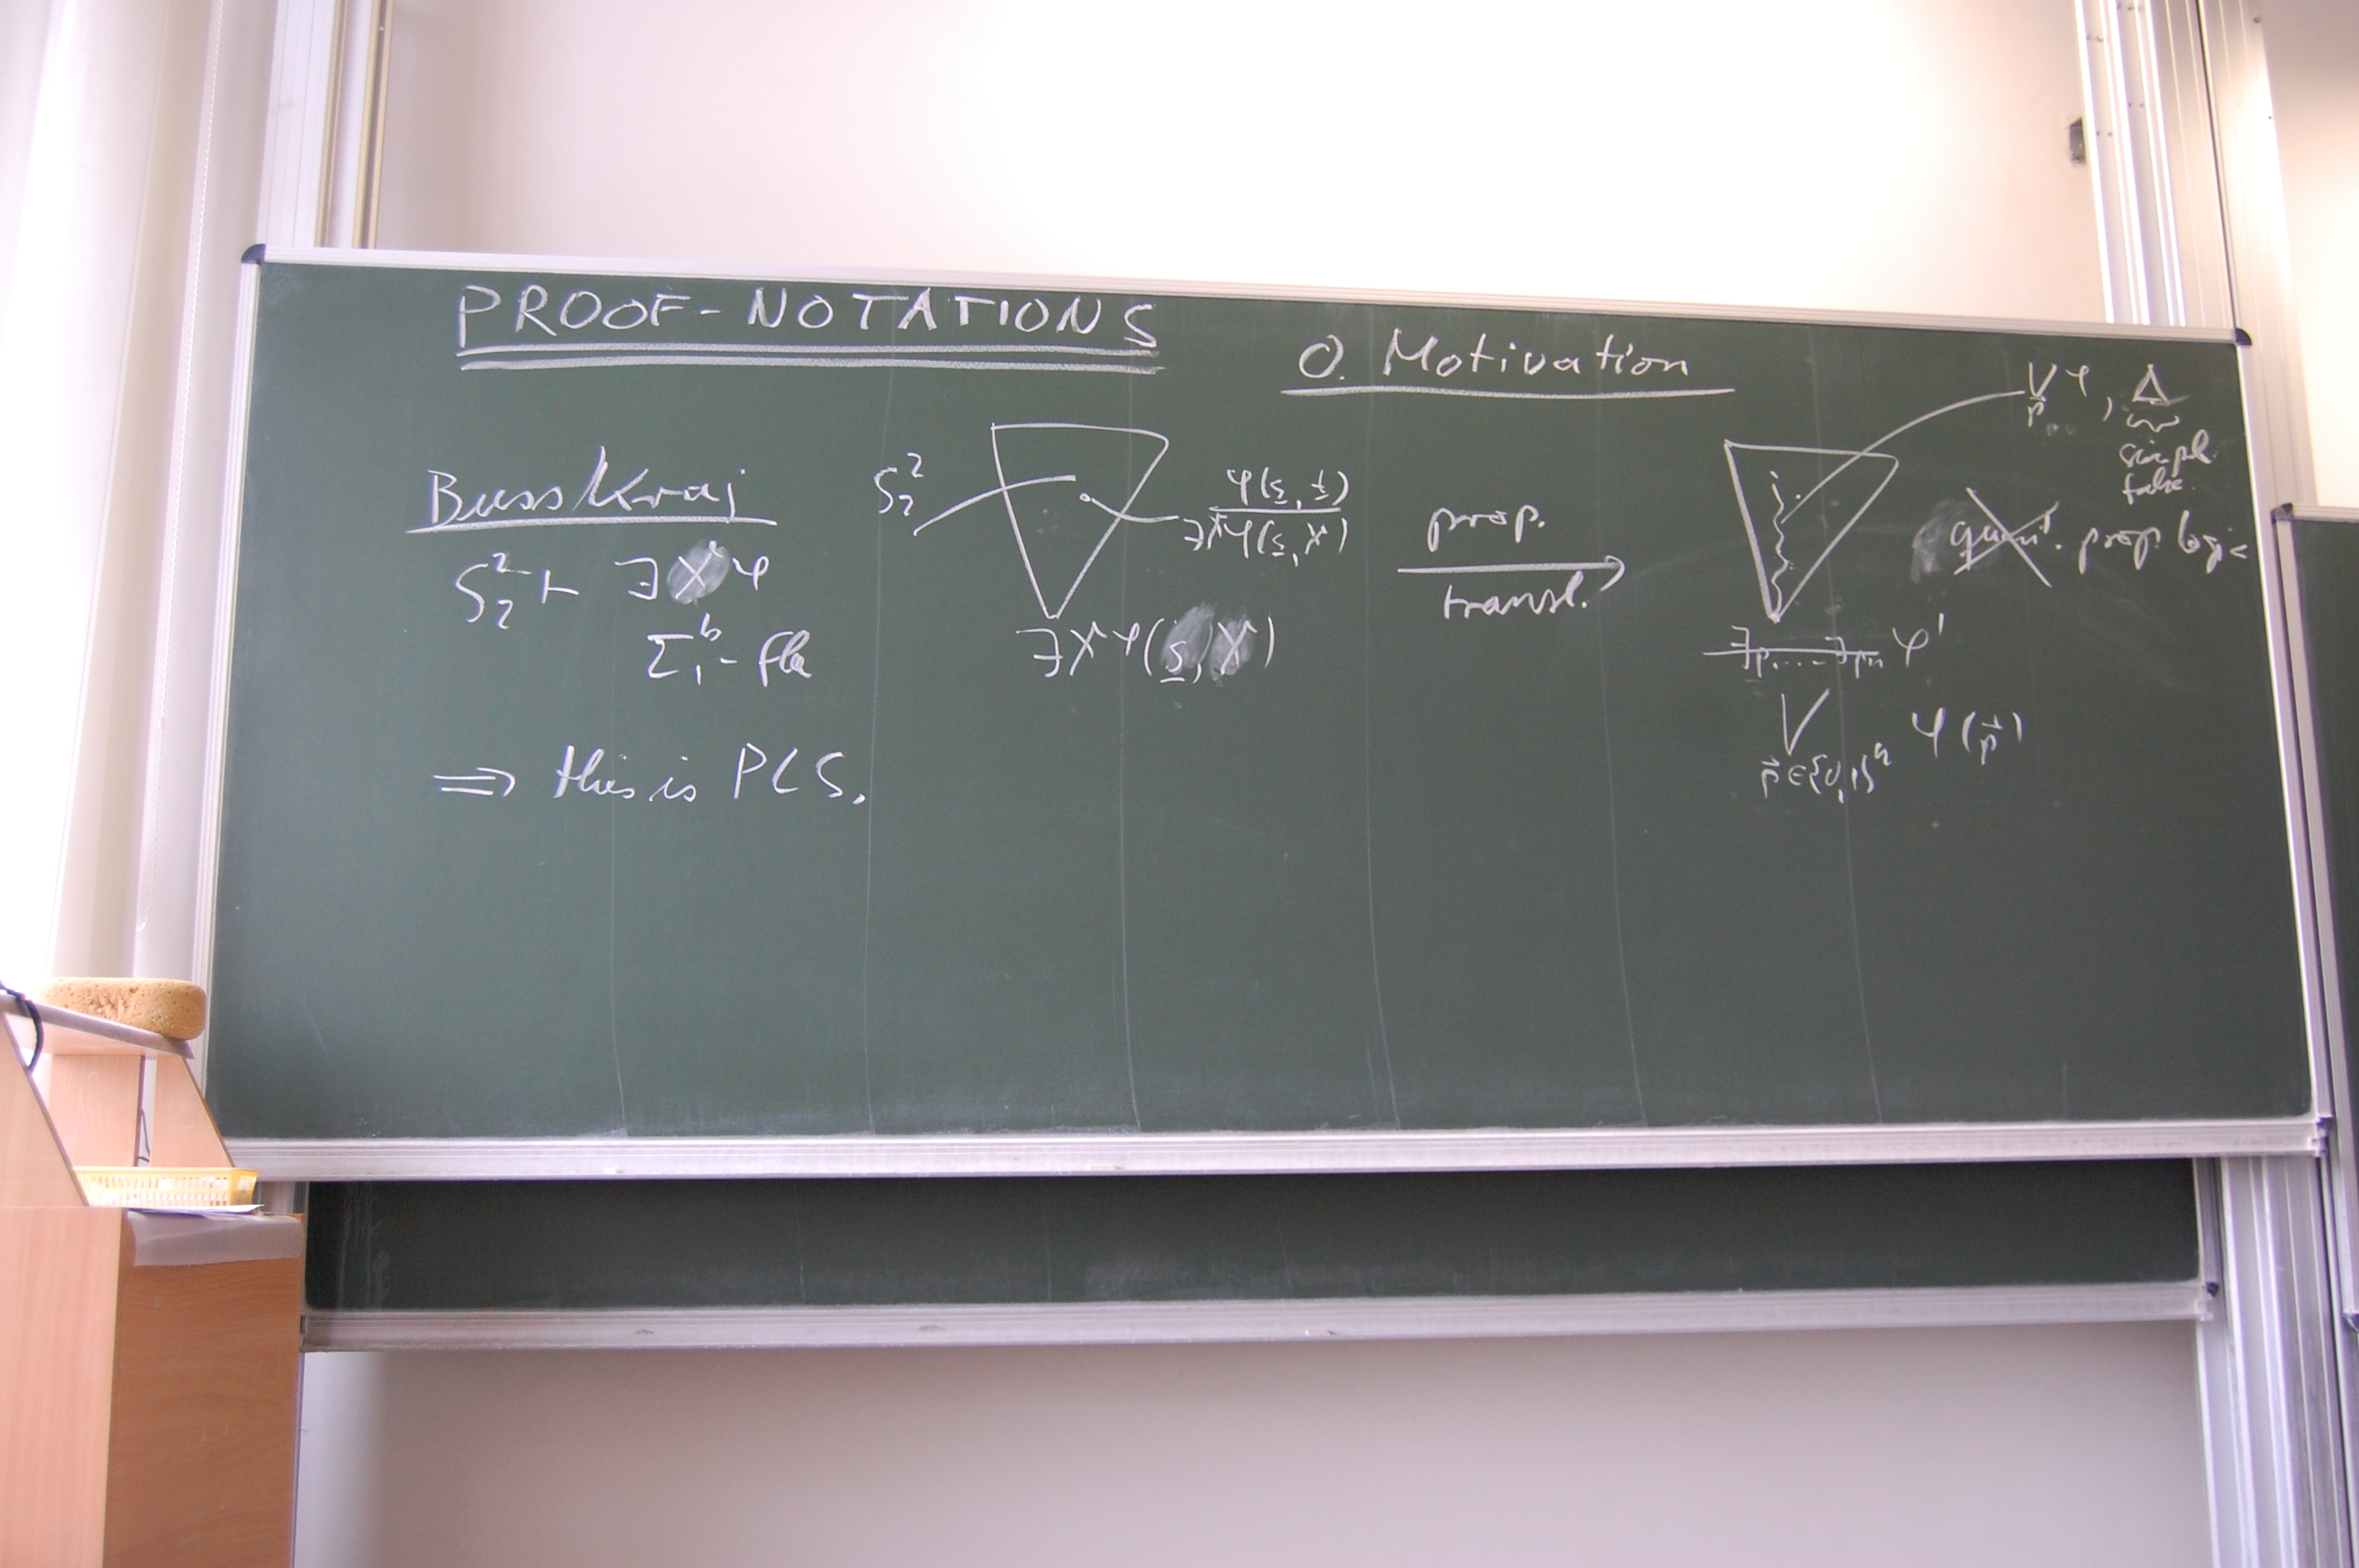 PROOF-NOTATIONS
0. Motivation
Buss/Kraj
S₂² ⊢ ∃X φ
Σ₁ᵇ - fla
⇒ this is PLS.
S₂²
φ(s, t)
∃Xφ(s, X)
∃X φ(s, X)
prop.
transl.
⋁ φ, Δ
p..
simpl.
false.
quant. prop logic
∃p₁....∃pₙ φ'
⋁ φ(p⃗)
p⃗ ∈ {0,1}ⁿ